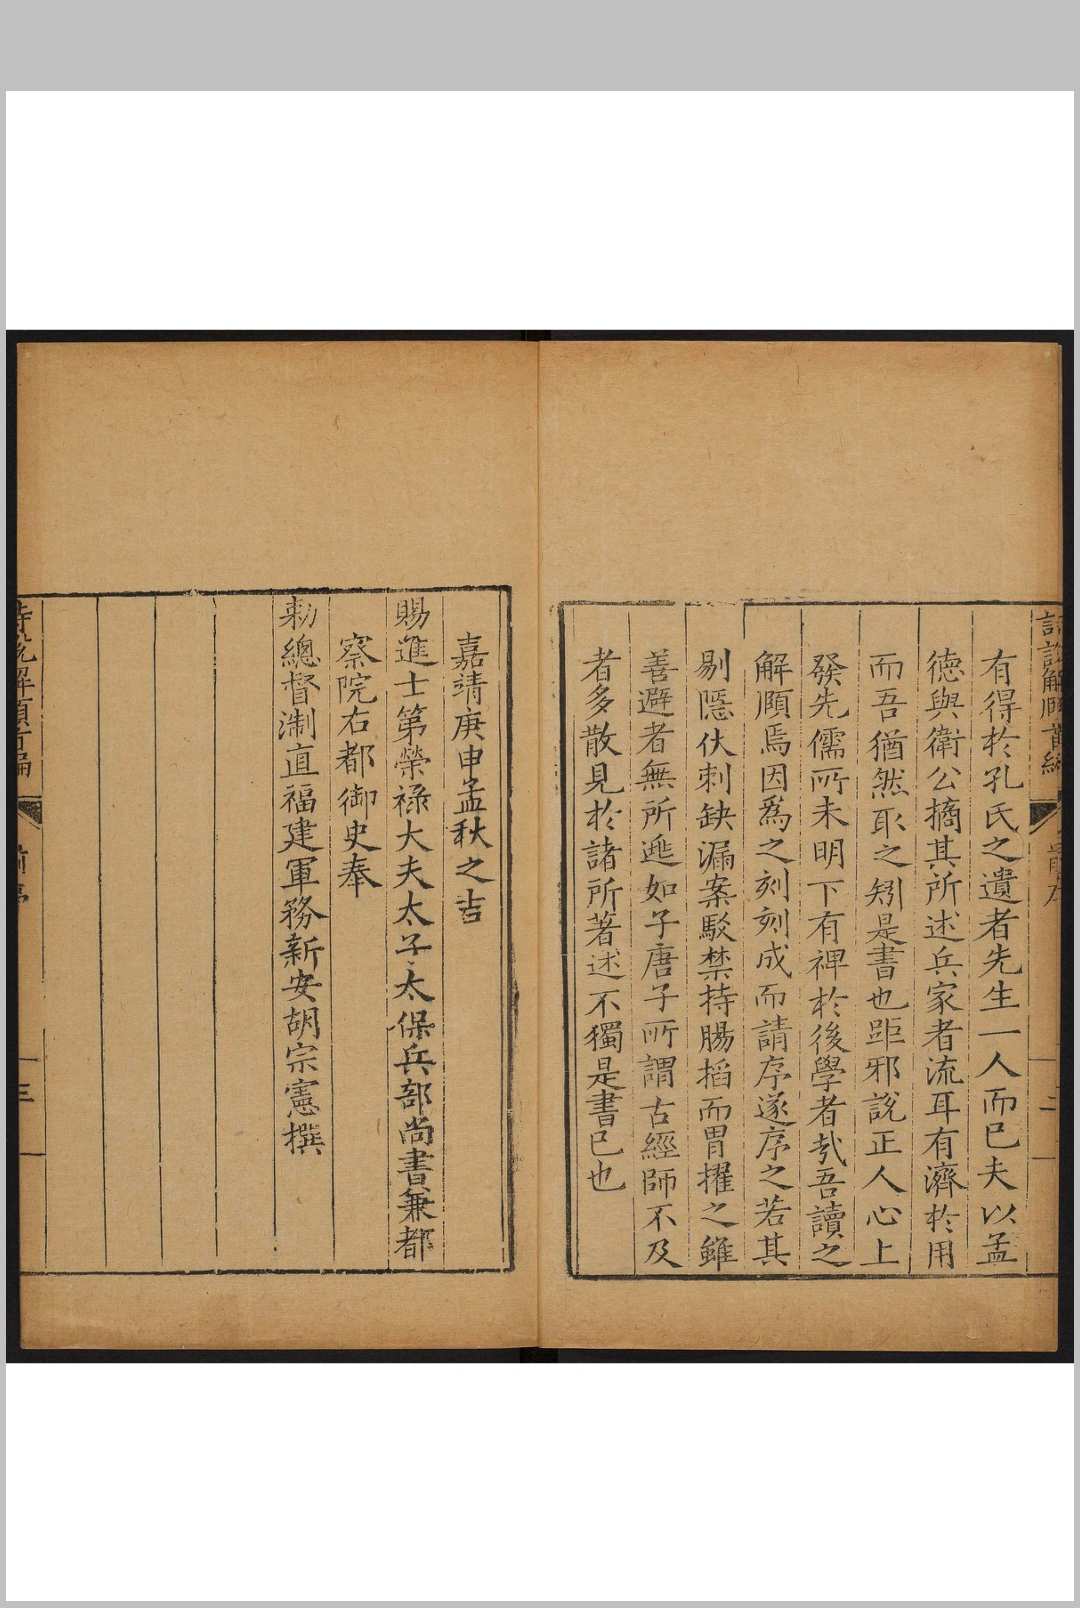 有得於孔氏之遺者先生一人而已夫以孟
德與衛公摘其所述兵家者流耳有濟於用
而吾猶然取之矧是書也距邪說正人心上
發先儒所未明下有裨於後學者哉吾讀之
解頤焉因爲之刻刻成而請序遂序之若其
剔隱伏刺缺漏案駁禁持腸搯而胃擢之雖
善避者無所遯如子唐子所謂古經師不及
者多散見於諸所著述不獨是書已也
二
嘉靖庚申孟秋之吉
賜進士第榮祿大夫太子太保兵部尚書兼都
察院右都御史奉
勑總督淛直福建軍務新安胡宗憲撰
詩說解頤首編
前序
三